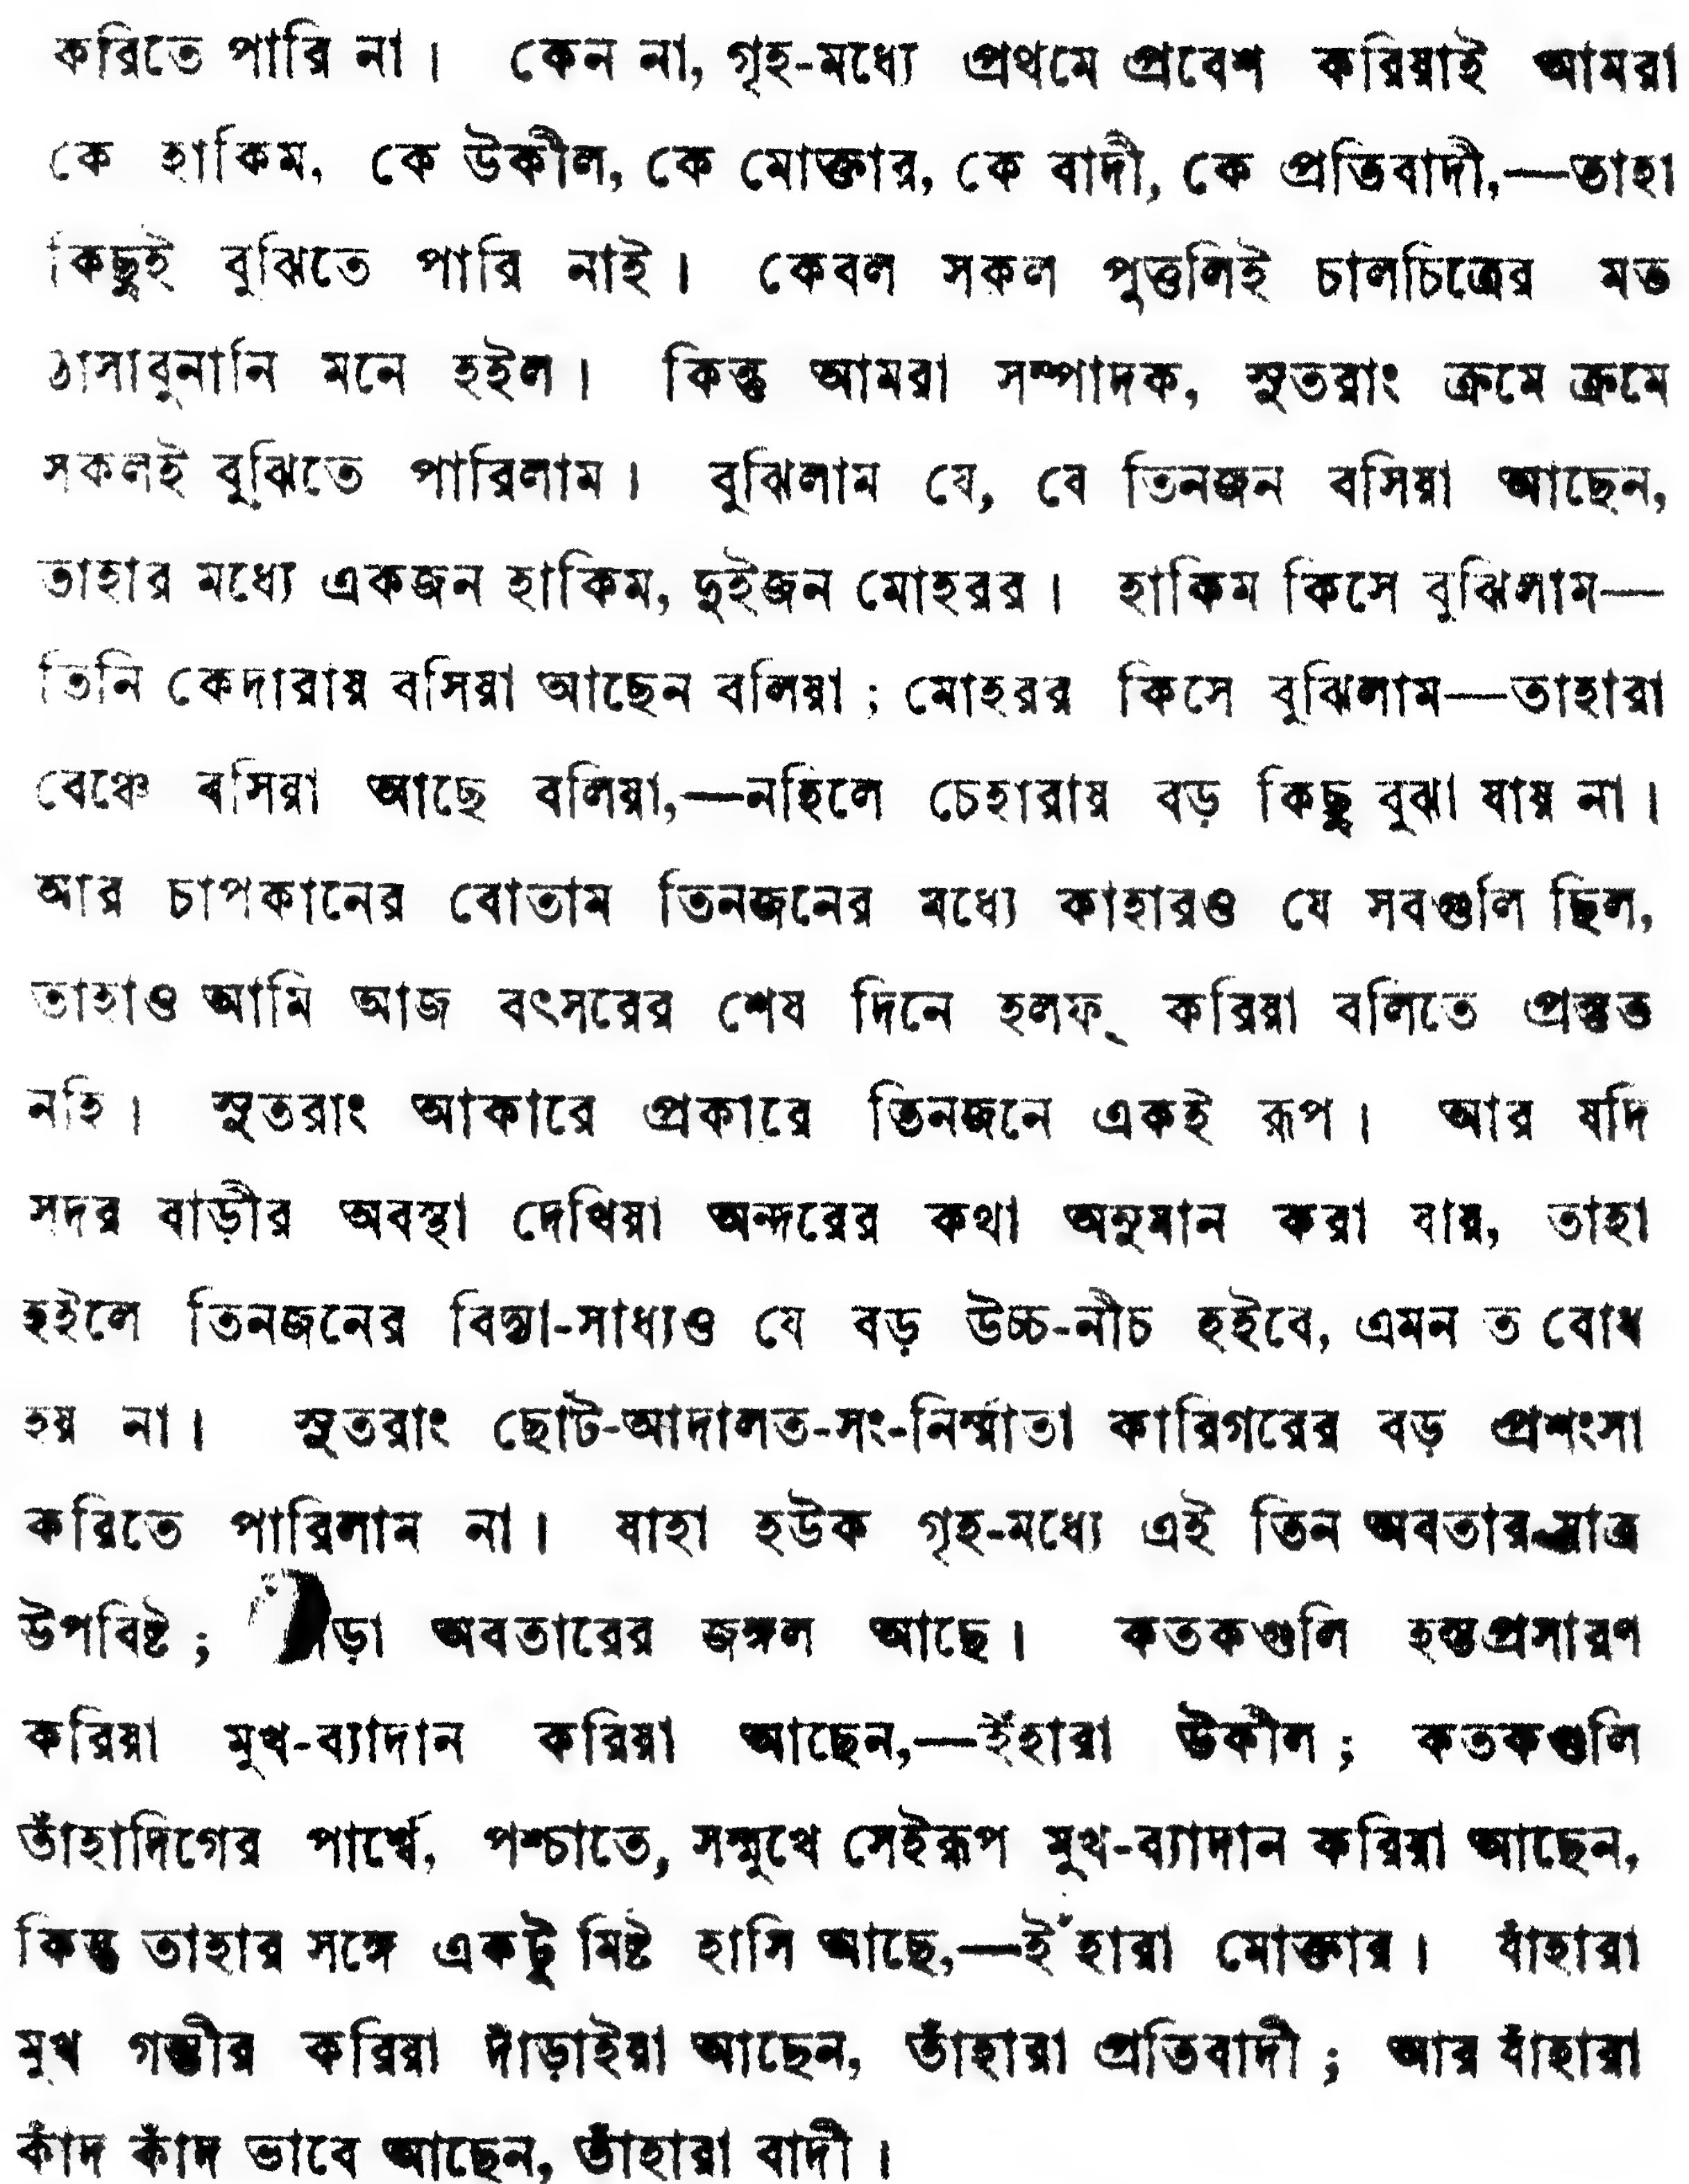 করিতে পারি না। কেন না, গৃহ-মধ্যে প্রথমে প্রবেশ করিয়াই আমরা
কে হাকিম, কে উকীল, কে মোক্তার, কে বাদী, কে প্রতিবাদী,—তাহা
কিছুই বুঝিতে পারি নাই। কেবল সকল পুত্তলিই চালচিত্রের মত
ঠাসাবুনানি মনে হইল। কিন্তু আমরা সম্পাদক, সুতরাং ক্রমে ক্রমে
সকলই বুঝিতে পারিলাম। বুঝিলাম যে, যে তিনজন বসিয়া আছেন,
তাহার মধ্যে একজন হাকিম, দুইজন মোহরর। হাকিম কিসে বুঝিলাম—
তিনি কেদারায় বসিয়া আছেন বলিয়া; মোহরর কিসে বুঝিলাম—তাহারা
বেঞ্চে বসিয়া আছে বলিয়া,—নহিলে চেহারায় বড় কিছু বুঝা যায় না।
আর চাপকানের বোতাম তিনজনের মধ্যে কাহারও যে সবগুলি ছিল,
তাহাও আমি আজ বৎসরের শেষ দিনে হলফ্ করিয়া বলিতে প্রস্তুত
নহি। সুতরাং আকারে প্রকারে তিনজনে একই রূপ। আর যদি
সদর বাড়ীর অবস্থা দেখিয়া অন্দরের কথা অনুমান করা যায়, তাহা
হইলে তিনজনের বিদ্যা-সাধ্যও যে বড় উচ্চ-নীচ হইবে, এমন ত বোধ
হয় না। সুতরাং ছোট-আদালত-সং-নির্ম্মাতা কারিগরের বড় প্রশংসা
করিতে পারিলাম না। যাহা হউক গৃহ-মধ্যে এই তিন অবতার মাত্র
উপবিষ্ট; অবতারের জঙ্গল আছে। কতকগুলি হস্তপ্রসারণ
করিয়া মুখ-ব্যাদান করিয়া আছেন,—ইঁহারা উকীল; কতকগুলি
তাঁহাদিগের পার্শ্বে, পশ্চাতে, সম্মুখে সেইরূপ মুখ-ব্যাদান করিয়া আছেন,
কিন্তু তাহার সঙ্গে একটু মিষ্ট হাসি আছে,—ইঁহারা মোক্তার। যাঁহারা
মুখ গম্ভীর করিয়া দাঁড়াইয়া আছেন, তাঁহারা প্রতিবাদী; আর যাঁহারা
কাঁদ কাঁদ ভাবে আছেন, তাঁহারা বাদী।